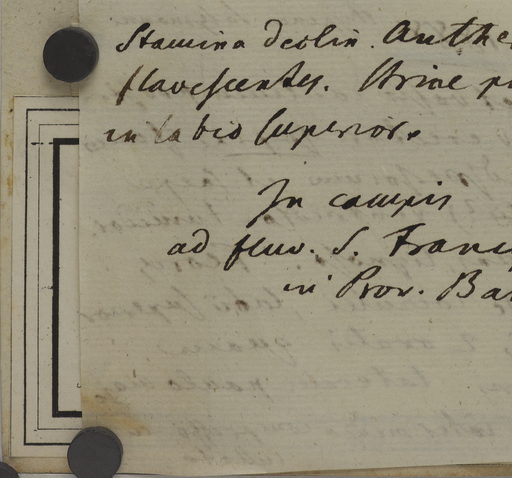 Stamina declin. Anthe
flavescentes. Striae pu
in labio superiore.
In campis
ad fluv. S. Franc
in Prov. Ba